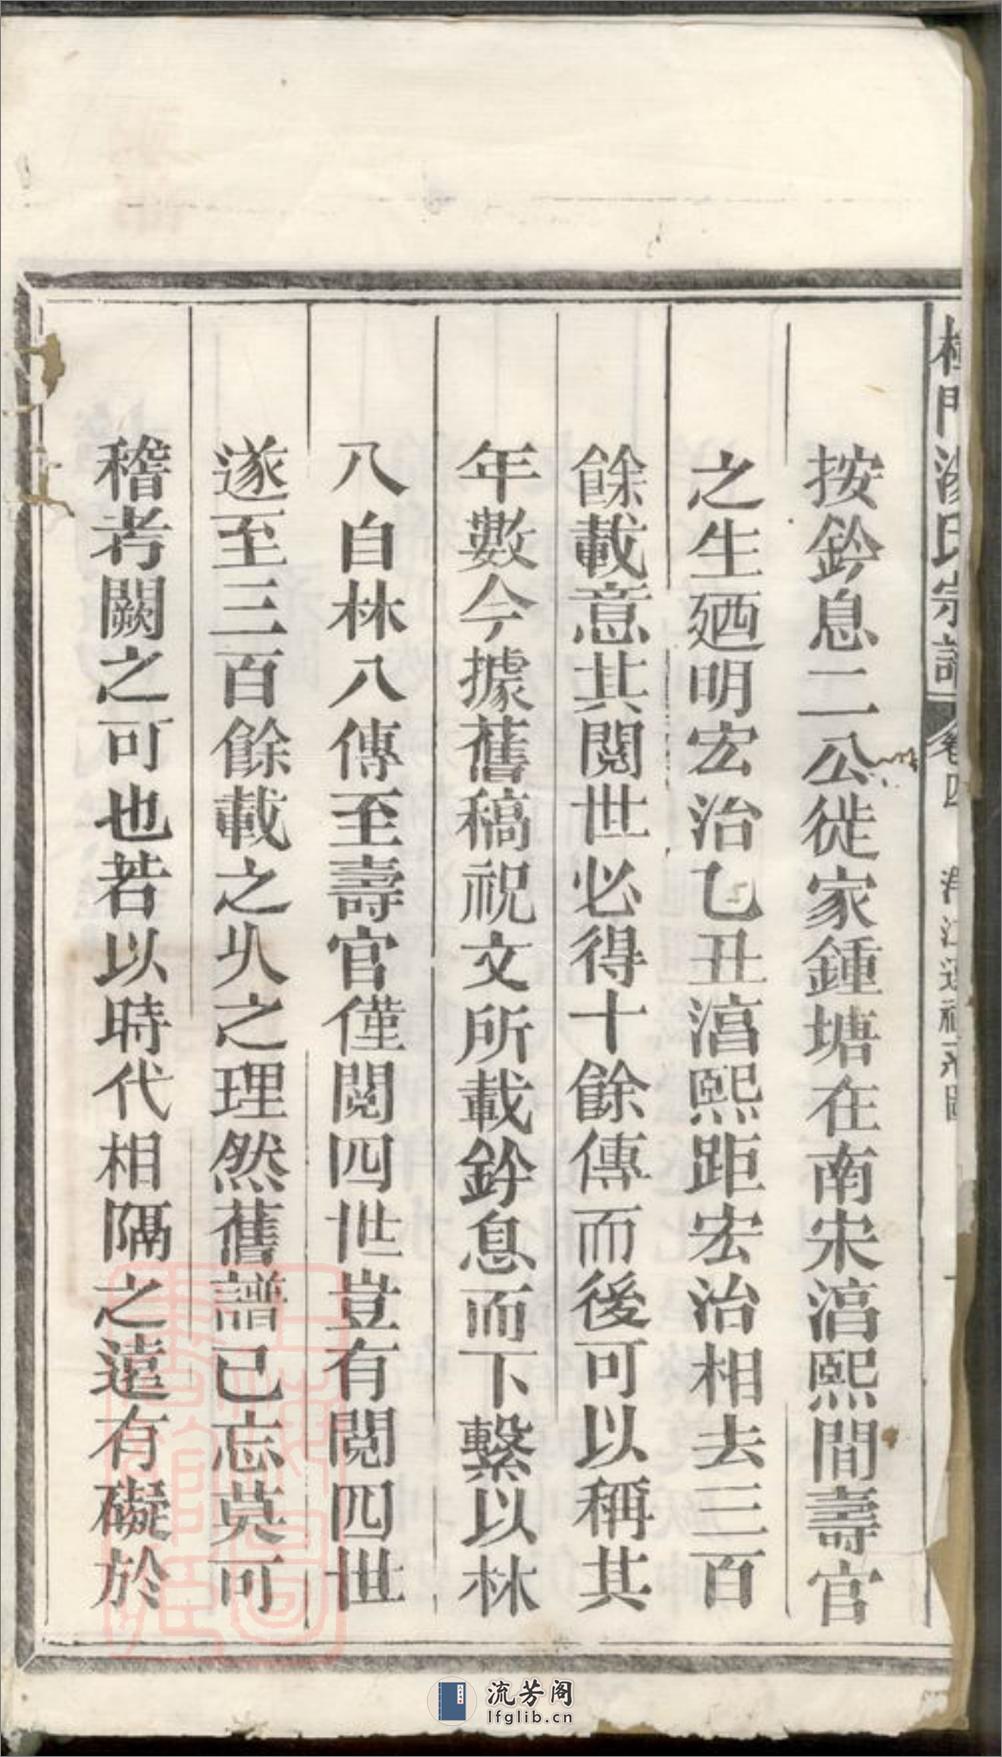 門 氏宗譜 卷四
按鈐息二公徙家鍾塘在南宋淳熙間壽官
之生廼明宏治乙丑淳熙距宏治相去三百
餘載意其閱世必得十餘傳而後可以稱其
年數今據舊稿祝文所載鈐息而下繫以林
八自林八傳至壽官僅閱四世豈有閱四世
遂至三百餘載之乆之理然舊譜已忘莫可
稽考闕之可也若以時代相隔之遠有礙於
上海圖書館藏
流芳阁
lfglib.cn